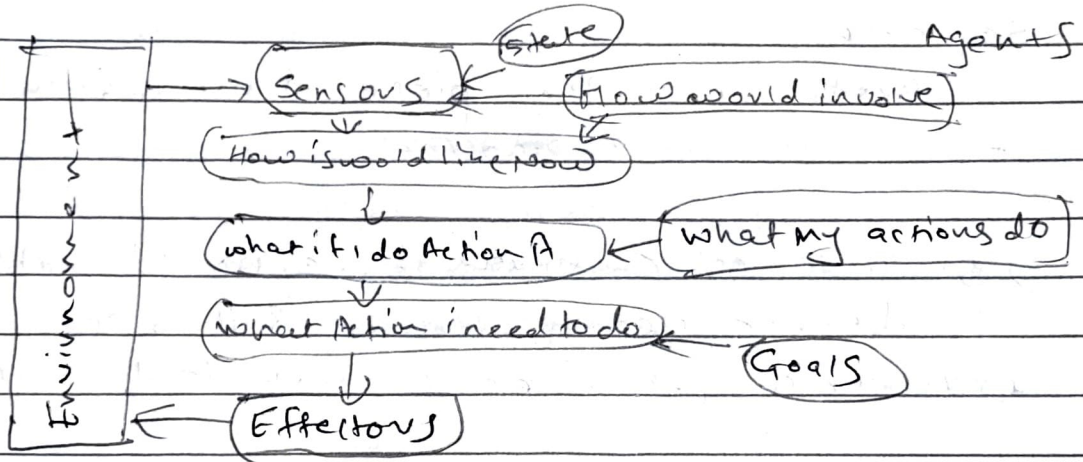 State
Agents
Sensors
How world involve
How is world like Now
what if i do Action A
what my actions do
what Action i need to do
Goals
Effectors
Environment